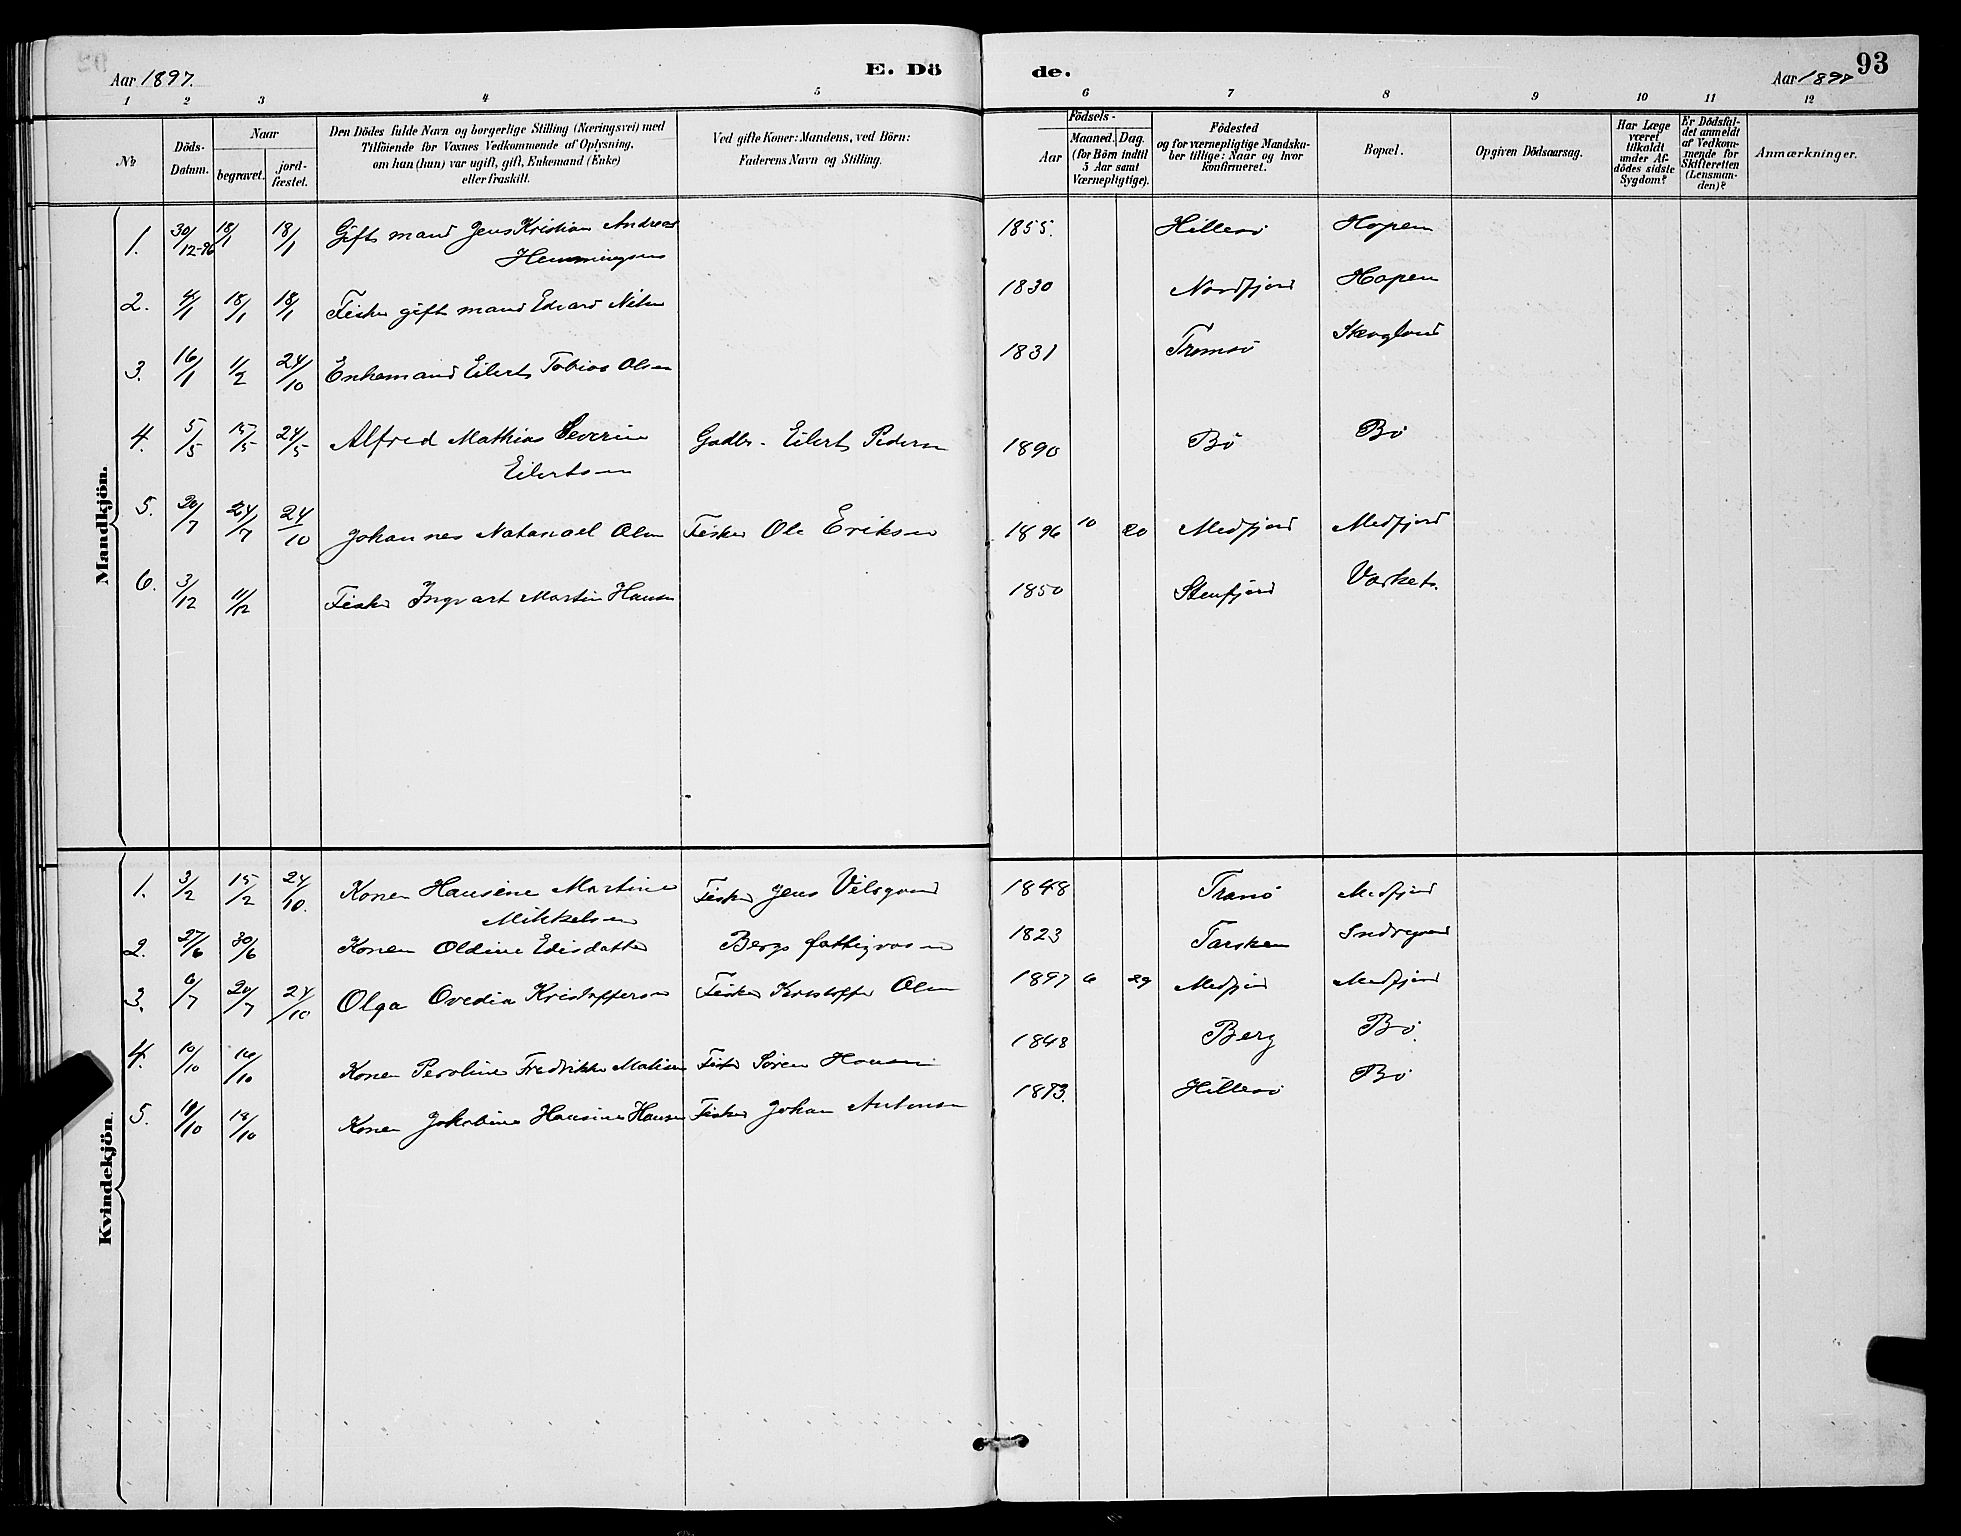 Aar 1897.
E. Dö
de.
Aar 1897
93
1 2 3 4 5 6 7 8 9 10 11 12
No
Döds-
Datum.
Naar
begravet.
jord-
fæstet.
Den Dödes fulde Navn og borgerlige Stilling (Næringsvei) med
Tilföiende for Voxnes Vedkommende af Oplysning,
om han (hun) var ugift, gift, Enkemand (Enke)
eller fraskilt.
Ved gifte Koner: Mandens, ved Börn:
Faderens Navn og Stilling.
Födsels-
Aar
Maaned.
Dag.
(for Börn indtil
5 Aar samt
Værnepligtige).
Födested
og for værnepligtige Mandska-
ber tillige: Naar og hvor
konfirmeret.
Bopæl.
Opgiven Dödsaarsag.
Har Læge
været
tilkaldt
under Af-
dödes sidste
Sygdom?
Er Dödsfal-
det anmeldt
af Vedkom-
mende for
Skifteretten
(Lensman-
den)?
Anmærkninger.
Mandkjön.
1. 30/12-96 18/1 18/1 Gift mand Jens Kristian Andreas 1855. Hillesö Hopen
Hemmingsen
2. 4/1 18/1 18/1 Fisker gift mand Edvard 1830 Nordfjord Hopen
3. 16/1 1/2 24/10 Enkemand Eilert Tobias Olsen 1831 Tromsö Skogland
4. 5/5 15/5 24/5 Alfred Mathias Severin Gadbr. Eilert Pedersen 1890 Bö Bö
Eilertsen
5. 20/7 24/7 24/10 Johannes Natanael Olsen Fisker Ole Eriksen 1896 10 20 Medfjord Medfjord
6. 3/12 11/12 Fisker Ingvart Martin Hansen 1850 Stenfjord
Kvindekjön.
1. 3/2 15/2 24/10. Konen Hansine Martine Fisker Jens 1848 Tranö Medfjord
Mikkelsen
2. 27/6 30/6 Konen Oldine Bergs fattigvæsen 1823 Torsken
3. 6/7 20/7 24/10 Olga Ovedia Kristoffersen Fisker Kristoffer Olsen 1897 6 29 Medfjord Medfjord
4. 10/10 16/10 Konen Peroline Fredrikke Fisker Sören Hansen 1848 Berg Bö.
5. 11/10 18/10 Konen Jakobine Hansine Hansen Fisker Johan Antonsen 1873. Hillesö Bö